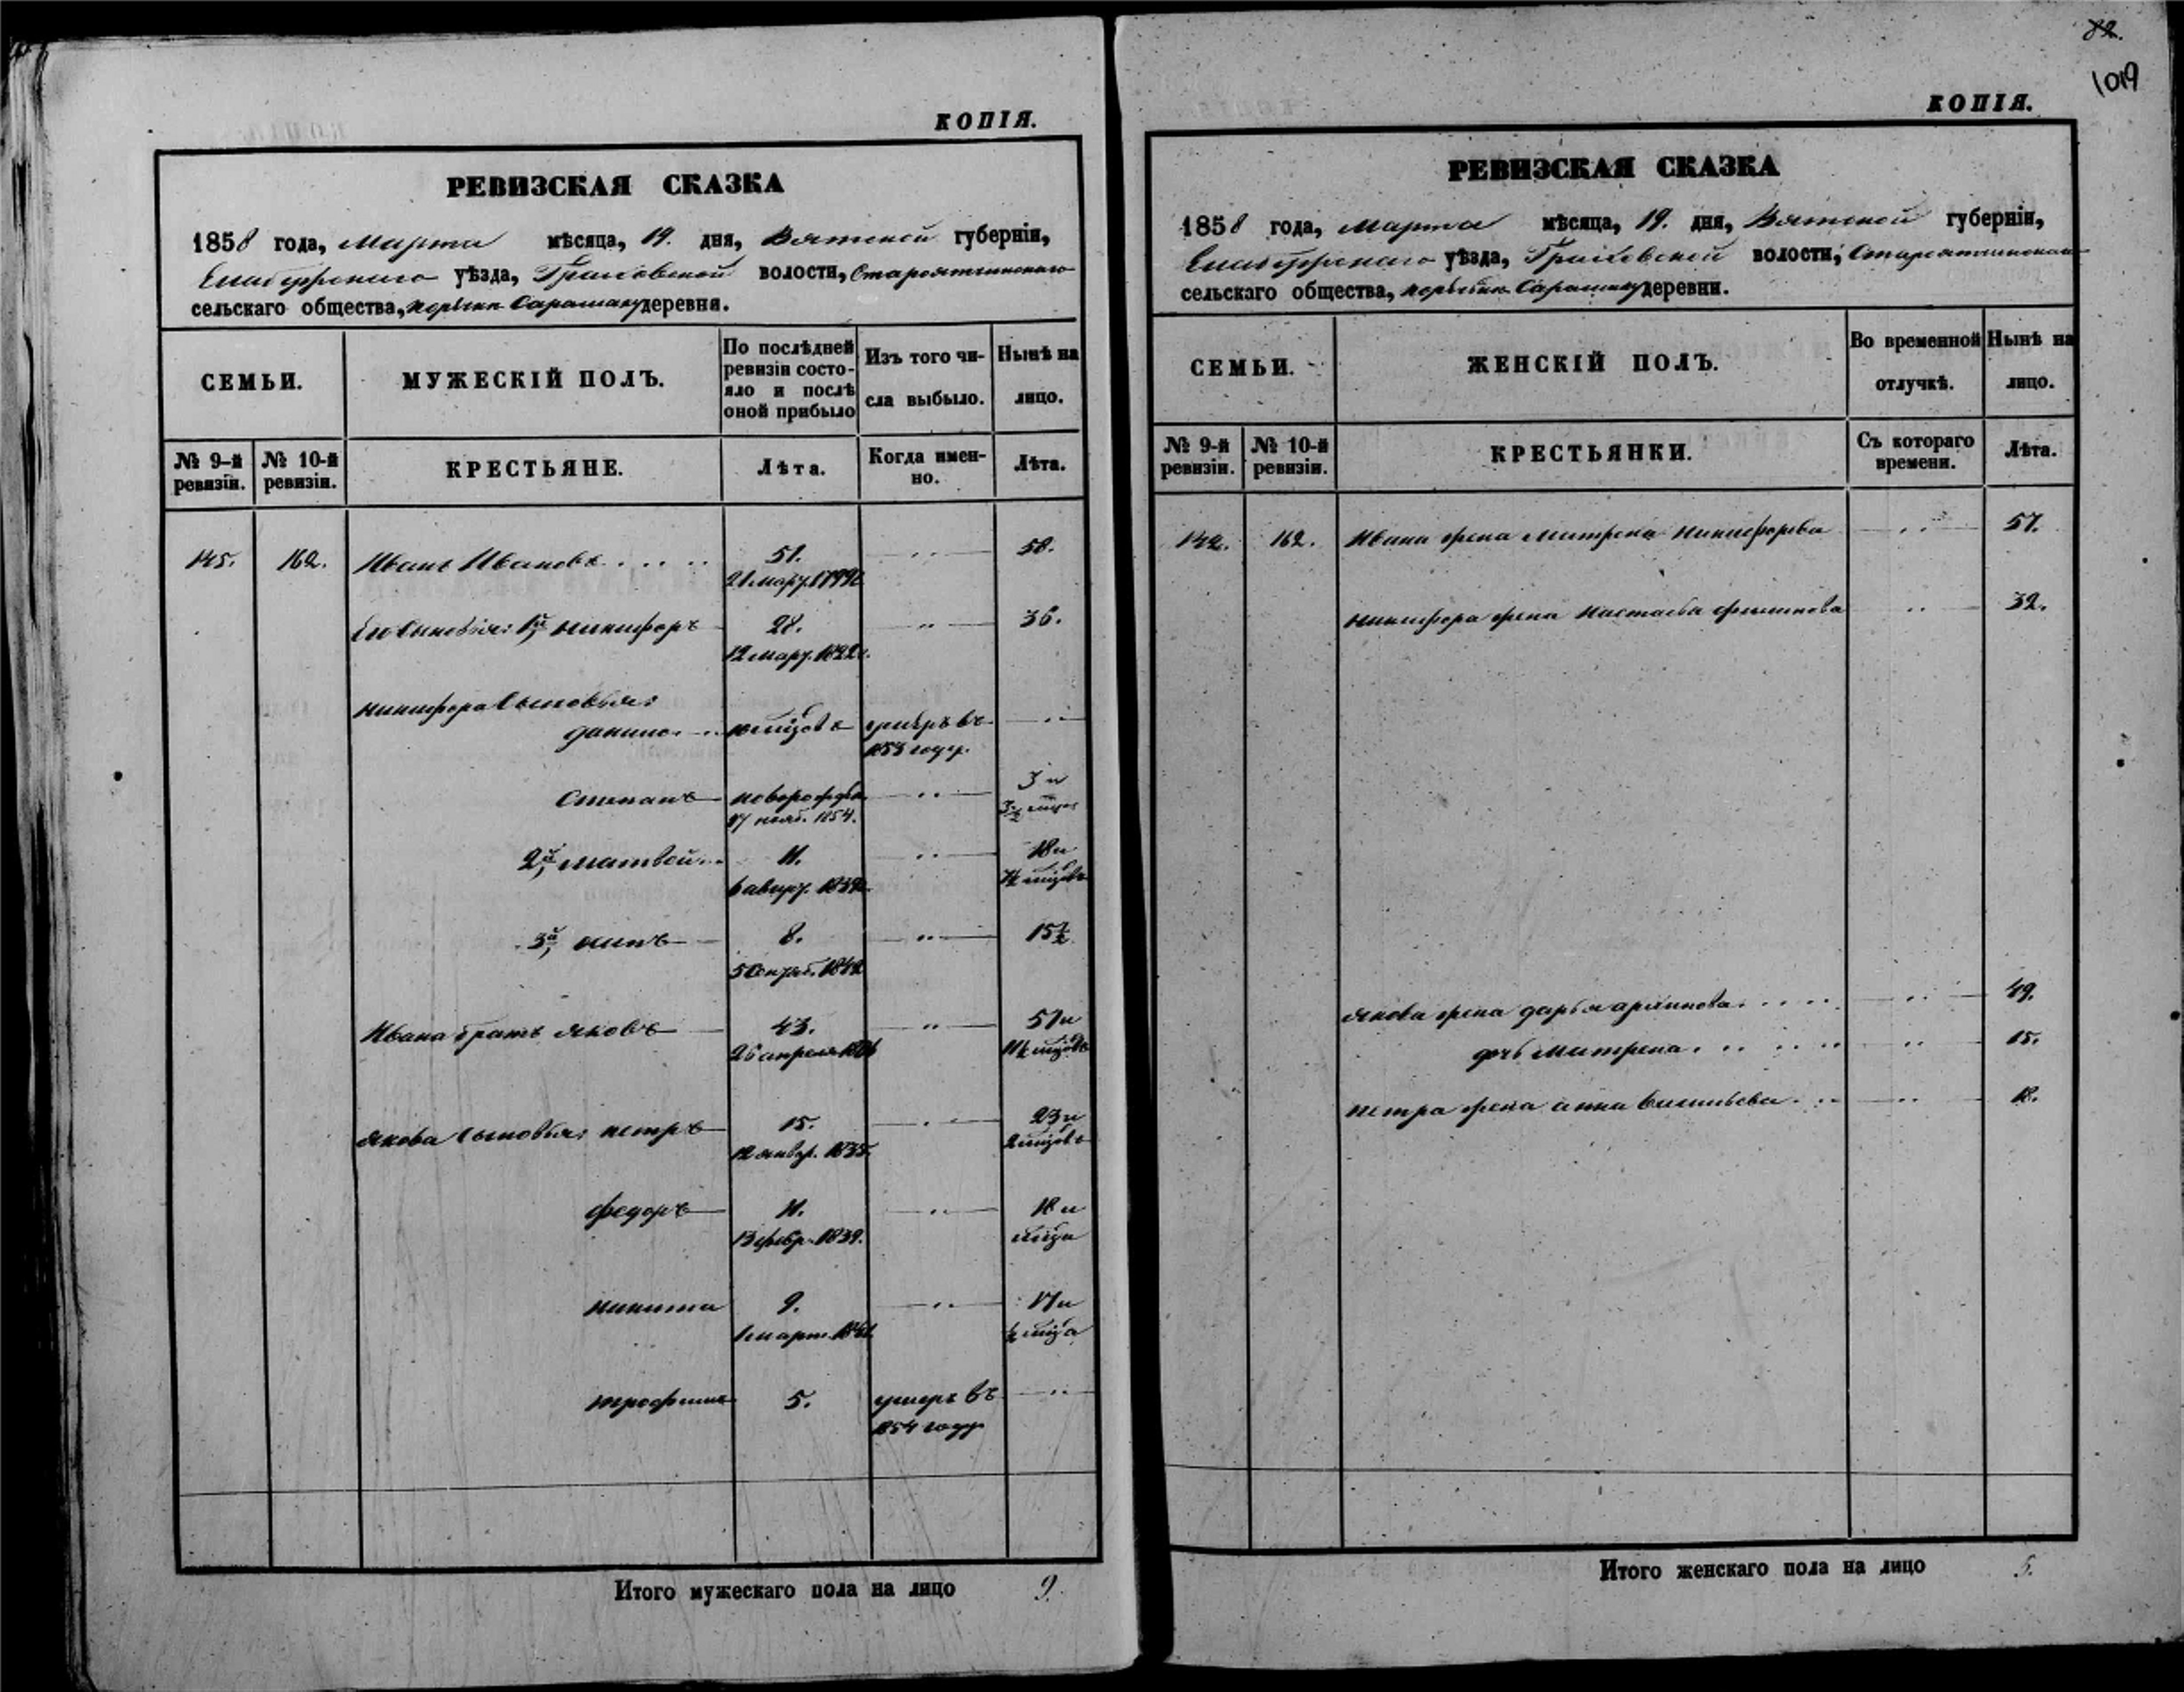 КОПІЯ.
РЕВИЗСКАЯ СКАЗКА
1858 года, Марта мѣсяца, 19. дня, Вятской губерніи,
Елабужскаго уѣзда, Граховской волости, Староятчинскаго
сельскаго общества, деревни.
СЕМЬИ.
МУЖЕСКІЙ ПОЛЪ.
По послѣдней ревизіи состо-
яло и послѣ оной прибыло
Изъ того чи-
сла выбыло.
Нынѣ на
лицо.
№ 9-й ревизіи.
№ 10-й ревизіи.
КРЕСТЬЯНЕ.
Лѣта.
Когда имен-
но.
Лѣта.
145. 162. Иванъ Ивановъ 51. 58.
Его Сыновья: 1й Никифоръ 28. 36.
12 март. 1822
Никифора Сыновья:
Данило умеръ въ
1853 году.
Степанъ новорожден 3 и
17 нояб. 1854. 3½
2й, Матвей 11. 18 и
3й, Осипъ 8. 15½
5 Сентяб. 1842
Ивана братъ Яковъ 43. 51 и
26 апреля
Якова Сыновья: Петръ 15. 23 и
12 январ. 1835. 2
Федоръ 11. 18 и
13 февр. 1839.
Никита 9. 17 и
1 март. ½
Трофимъ 5. умеръ въ
1854 году
Итого мужескаго пола на лицо 9.
82.
1019
КОПІЯ.
РЕВИЗСКАЯ СКАЗКА
1858 года, Марта мѣсяца, 19. дня, Вятской губерніи,
Елабужскаго уѣзда, Граховской волости, Староятчинскаго
сельскаго общества, деревни.
СЕМЬИ.
ЖЕНСКІЙ ПОЛЪ.
Во временной
отлучкѣ.
Нынѣ на
лицо.
№ 9-й ревизіи.
№ 10-й ревизіи.
КРЕСТЬЯНКИ.
Съ котораго
времени.
Лѣта.
162. Ивана жена Матрена Никифорова 57.
Никифора жена Настасья 32.
Якова жена Дарья 49.
дочь Матрена 15.
Петра жена Анна Васильева 18.
Итого женскаго пола на лицо 5.